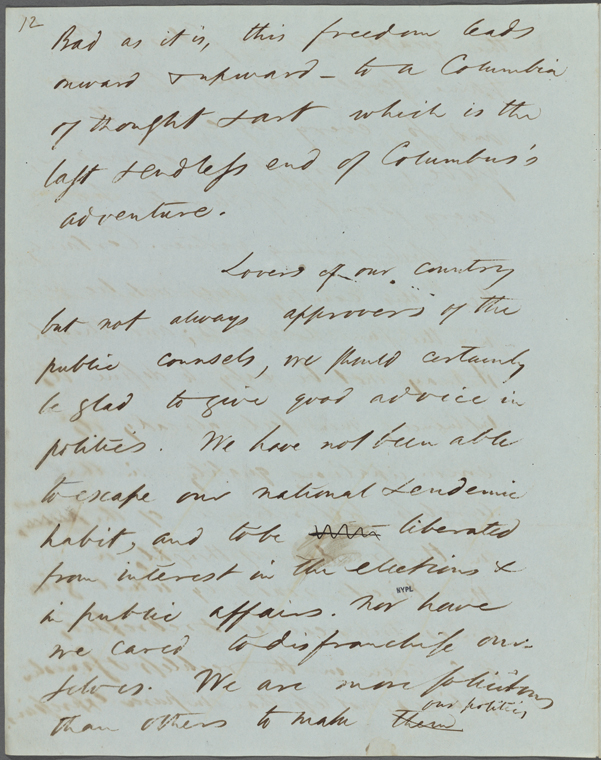 12
Bad as it is, this freedom leads
onward & upward – to a Columbia
of thought & art which is the
last & endless end of Columbus's
adventure.
Lovers of our country
but not always approvers of the
public counsels, we should certainly
be glad to give good advice in
politics. We have not been able
to escape our national & endemic
habit, and to be liberated
from interest in the elections &
NYPL
in public affairs. Nor have
we cared to disfranchise our-
selves. We are more solicitous
our politics,
than others to make them